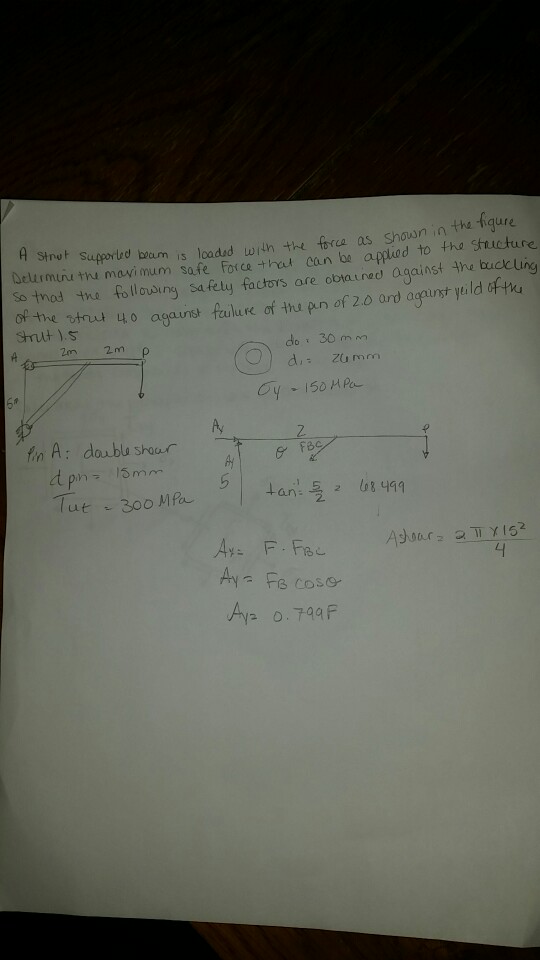 A strut supported beam is loaded with the force as shown in the figure
Determine the maximum safe Force that can be applied to the structure
so that the following safety factors are obtained against the buckling
of the strut 4.0 against failure of the pin of 2.0 and against yeild of the
strut 1.5
A 2m 2m P
5m
do = 30 mm
di = 26mm
σy = 150 MPa
Pin A: double shear
d pin = 15mm
Tut = 300 MPa
Ay 2 P
Ay θ FBC
5
tan⁻¹ = 5/2 = 68.499
Ax = F - FBC
Ay = FB cosθ
Ay = 0.799F
Ashear = 2π×15²/4